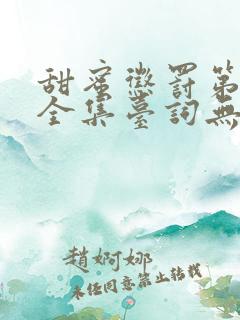 甜蜜懲罰第
全集臺詞無
趙婀娜
未经同意禁止转载